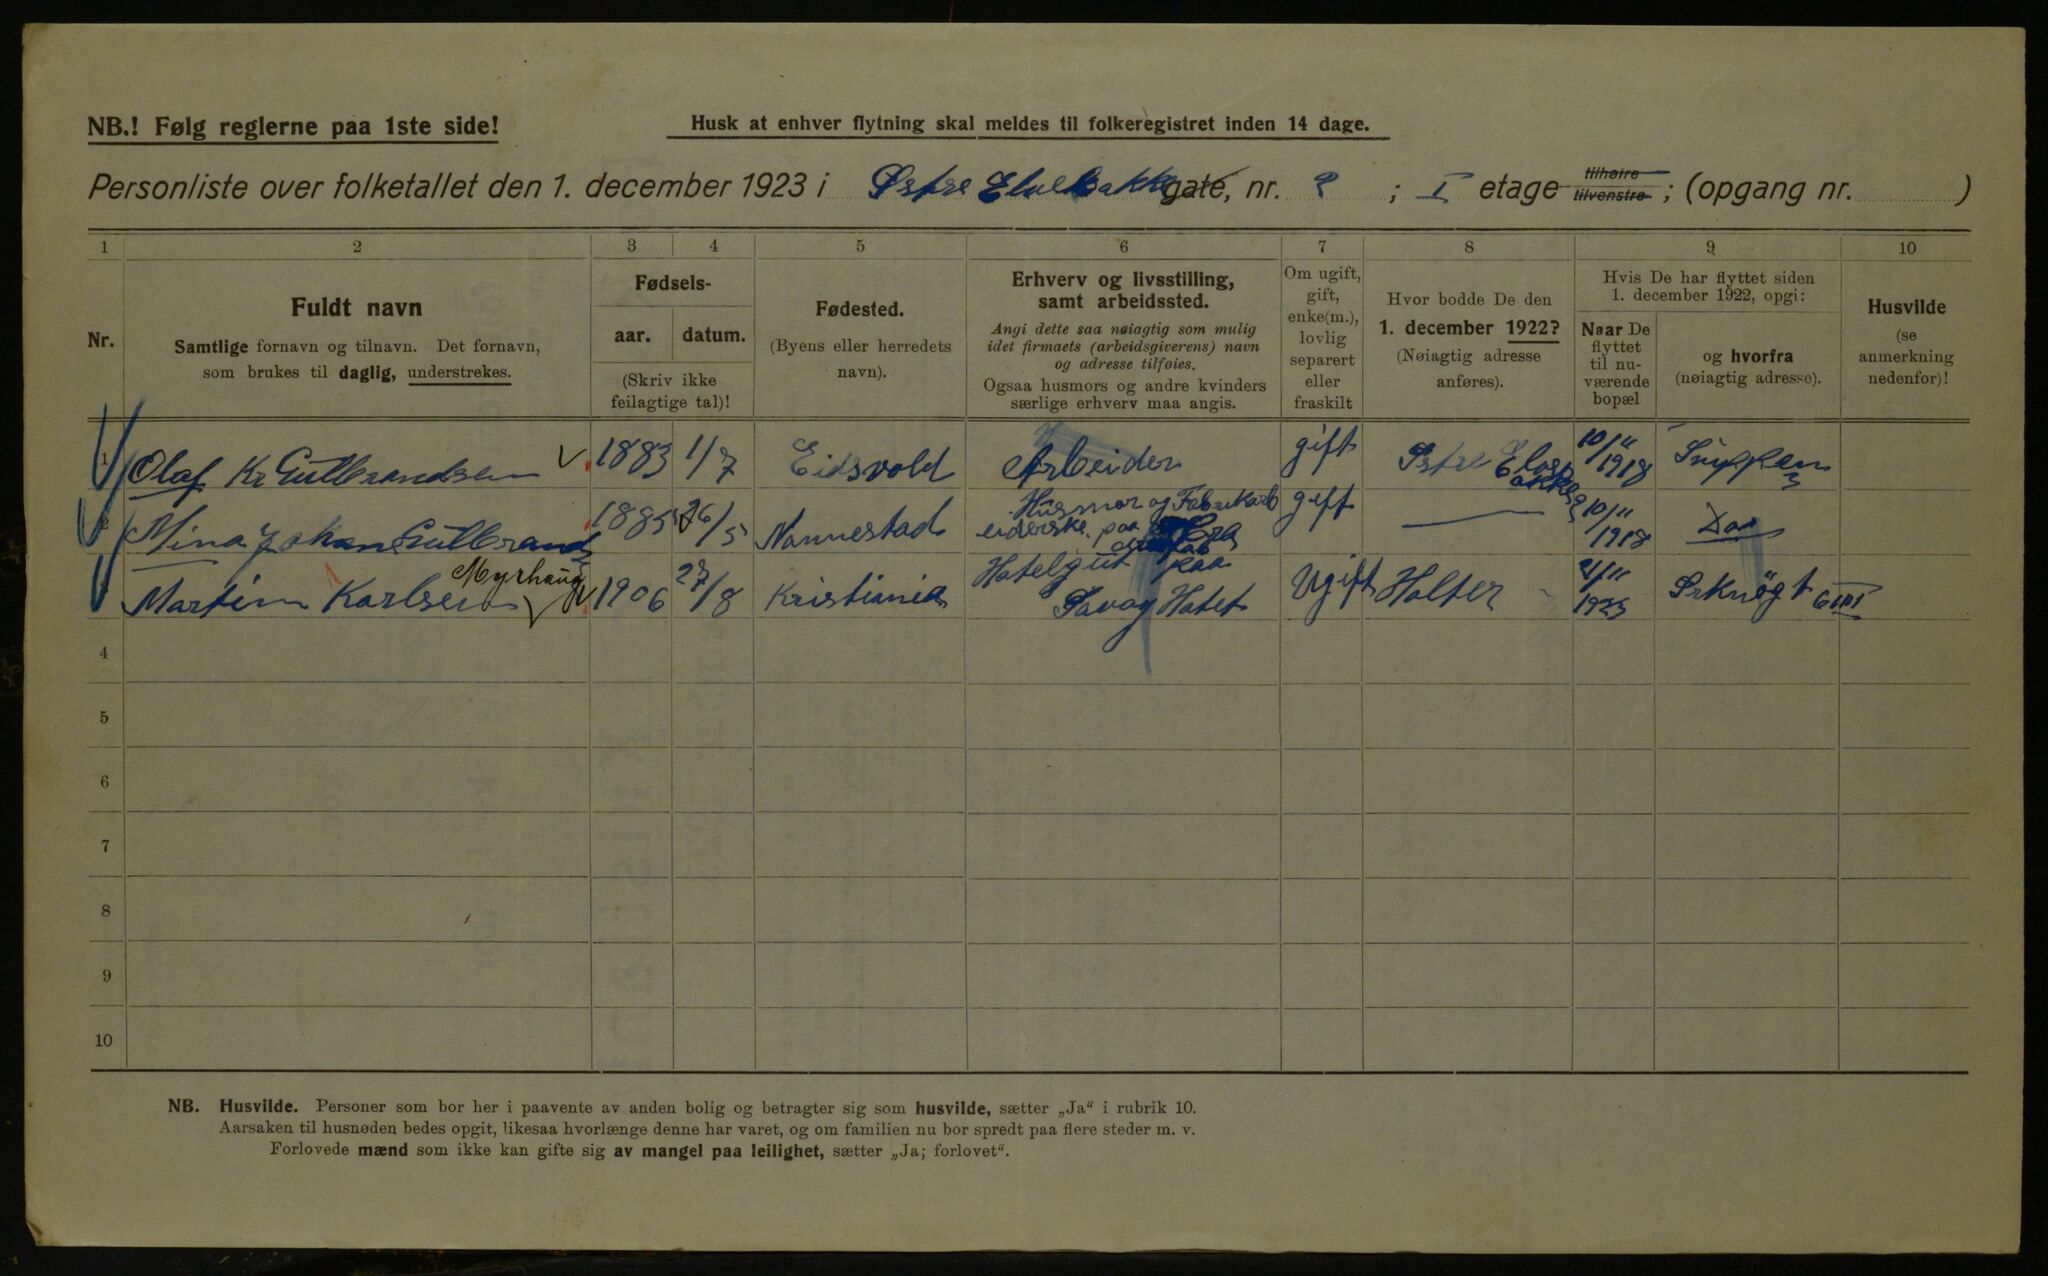 NB.! Følg reglerne paa 1ste side!
Husk at enhver flytning skal meldes til folkeregistret inden 14 dage.
Personliste over folketallet den 1. december 1923 i Østre Elvebakke gate, nr. 9 ; I etage tilhøire tilvenstre ; (opgang nr. )
1 2 3 4 5 6 7 8 9 10
Nr.
Fuldt navn
Samtlige fornavn og tilnavn. Det fornavn,
som brukes til daglig, understrekes.
Fødsels-
aar. datum.
(Skriv ikke
feilagtige tal)!
Fødested.
(Byens eller herredets
navn).
Erhverv og livsstilling,
samt arbeidssted.
Angi dette saa nøiagtig som mulig
idet firmaets (arbeidsgiverens) navn
og adresse tilføies.
Ogsaa husmors og andre kvinders
særlige erhverv maa angis.
Om ugift,
gift,
enke(m.),
lovlig
separert
eller
fraskilt
Hvor bodde De den
1. december 1922?
(Nøiagtig adresse
anføres).
Hvis De har flyttet siden
1. december 1922, opgi:
Naar De
flyttet
til nu-
værende
bopæl
og hvorfra
(nøiagtig adresse).
Husvilde
(se
anmerkning
nedenfor)!
1 Olaf Kr Gulbrandsen 1883 1/7 Eidsvold Arbeider gift Østre Elveb
akke 9 10/11 1918
2 Mina Johan Gulbrands 1885 26/5 Nannestad Husmor og Fabrikarb
eiderske paa gift 10/11 1918 Do
3 Martin Karlsen Myrhaug 1906 27/8 Kristiania Hotelgut paa
Savoy Hotel Ugift Holter 1923
4
5
6
7
8
9
10
NB. Husvilde. Personer som bor her i paavente av anden bolig og betragter sig som husvilde, sætter „Ja“ i rubrik 10.
Aarsaken til husnøden bedes opgit, likesaa hvorlænge denne har varet, og om familien nu bor spredt paa flere steder m. v.
Forlovede mænd som ikke kan gifte sig av mangel paa leilighet, sætter „Ja; forlovet“.